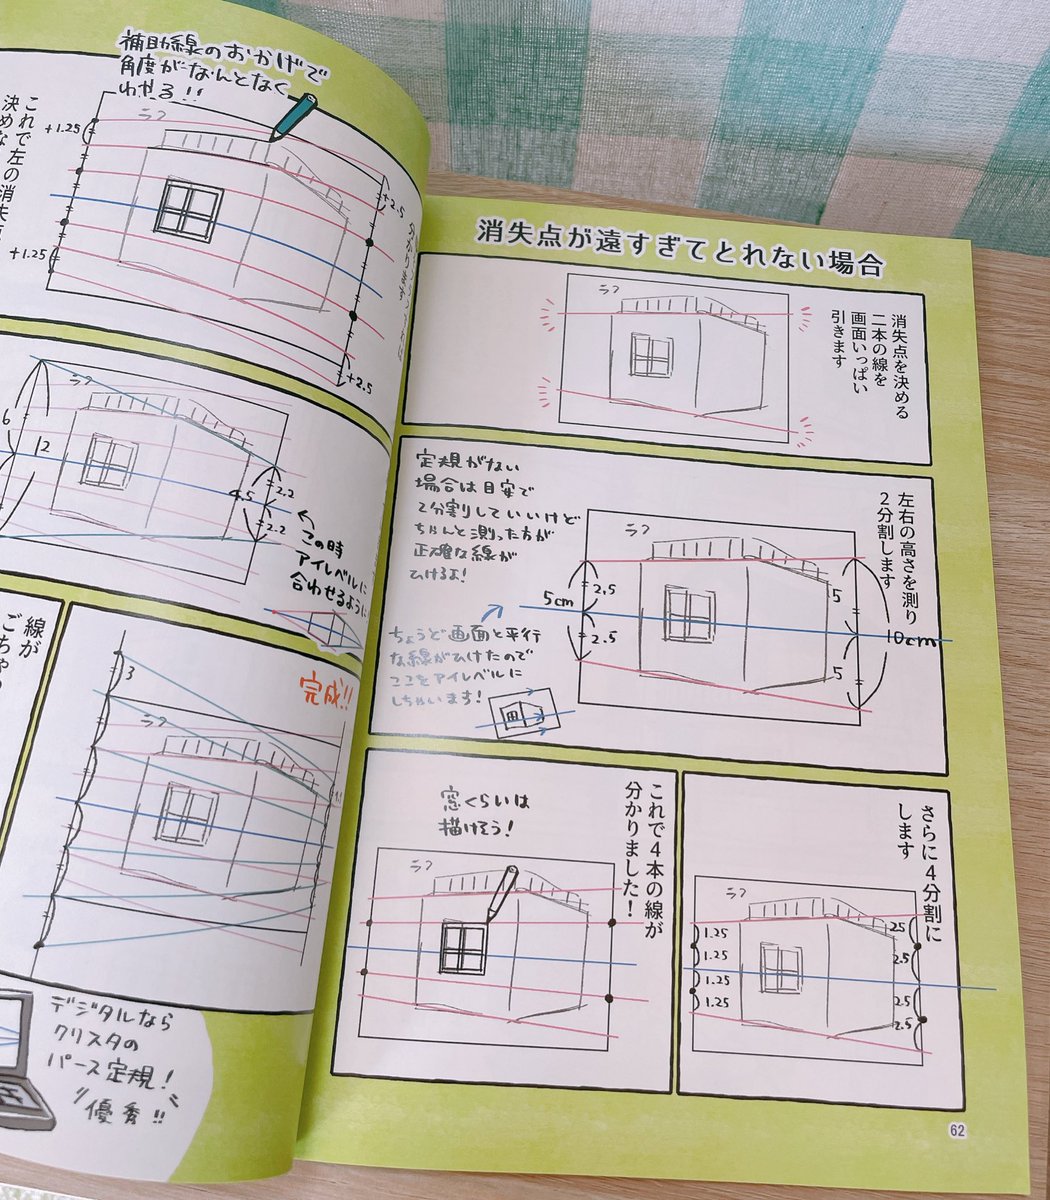 消失点が遠すぎてとれない場合
消失点を決める
二本の線を
画面いっぱい
引きます
ラフ
左右の高さを測り
2分割します
定規がない
場合は目安で
2分割していいけど
ちゃんと測った方が
正確な線が
ひけるよ!
ラフ
5cm
2.5
2.5
5
5
10cm
ちょうど画面と平行
な線がひけたので
ここをアイレベルに
しちゃいます!
さらに4分割に
します
ラフ
1.25
1.25
1.25
1.25
2.5
2.5
2.5
2.5
これで4本の線が
分かりました!
窓くらいは
描けそう!
ラフ
62
補助線のおかげで
角度がなんとなく
わかる!!
ラフ
+1.25
+1.25
+2.5
+2.5
これで左の消失
決め
ラフ
6
12
4.5
2.2
2.2
この時
アイレベルに
合わせるように
線が
ごちゃ
完成!!
ラフ
3
デジタルなら
クリスタの
パース定規!
優秀!!